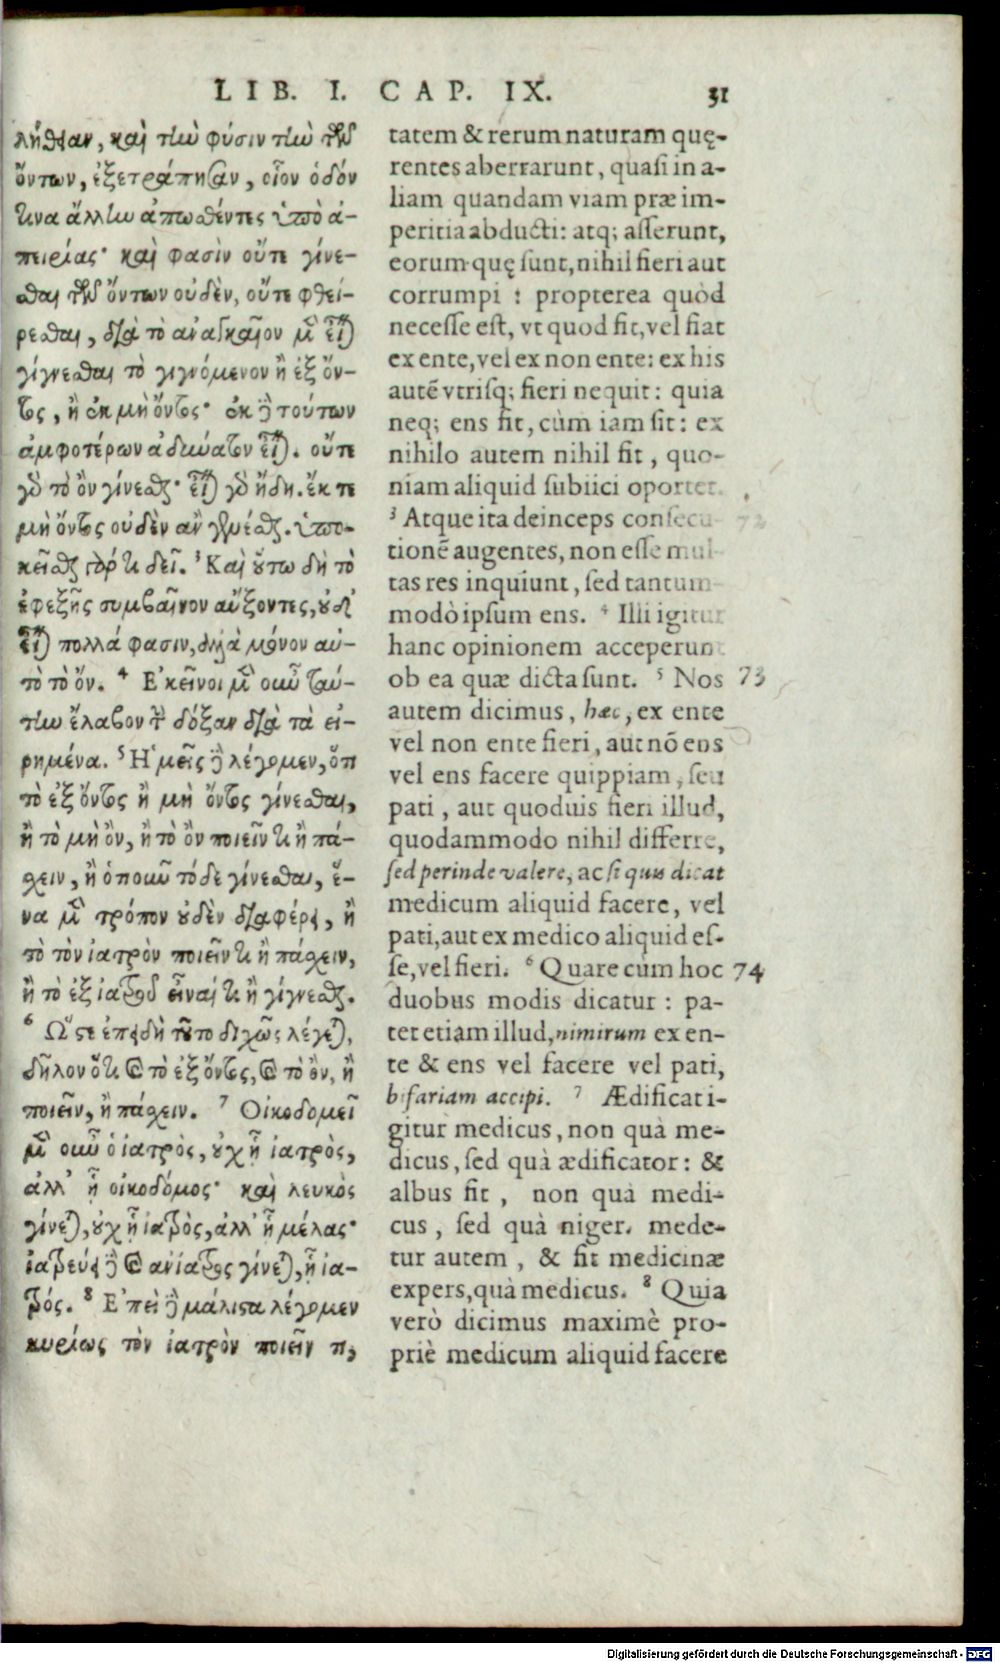 LIB. I. CAP. IX. 31
λήθειαν, καὶ τὴν φύσιν τὴν τῶν
ὄντων, ἐξετράπησαν, οἷον ὁδόν
τινα ἄλλην ἀπωσθέντες ὑπὸ ἀ-
πειρίας· καὶ φασὶν οὔτε γίνε-
σθαι τῶν ὄντων οὐδὲν, οὔτε φθεί-
ρεσθαι, διὰ τὸ ἀναγκαῖον μὲν εἶναι
γίγνεσθαι τὸ γιγνόμενον ἢ ἐξ ὄν-
τος, ἢ ἐκ μὴ ὄντος· ἐκ δὲ τούτων
ἀμφοτέρων ἀδύνατον εἶναι. οὔτε
γὰρ τὸ ὂν γίνεσθαι· εἶναι γὰρ ἤδη. ἔκ τε
μὴ ὄντος οὐδὲν ἂν γενέσθαι. ὑπο-
κεῖσθαι γάρ τι δεῖ. ³ Καὶ οὕτω δὴ τὸ
ἐφεξῆς συμβαῖνον αὔξοντες, οὐδ'
εἶναι πολλά φασιν, ἀλλὰ μόνον αὐ-
τὸ τὸ ὄν. ⁴ Ἐκεῖνοι μὲν οὖν ταύ-
την ἔλαβον τὴν δόξαν διὰ τὰ εἰ-
ρημένα. ⁵ Ἡμεῖς δὲ λέγομεν, ὅτι
τὸ ἐξ ὄντος ἢ μὴ ὄντος γίνεσθαι,
ἢ τὸ μὴ ὂν, ἢ τὸ ὂν ποιεῖν τι ἢ πά-
χειν, ἢ ὁποιοῦν τόδε γίνεσθαι, ἕ-
να μὲν τρόπον οὐδὲν διαφέρει, ἢ
τὸ τὸν ἰατρὸν ποιεῖν τι ἢ πάσχειν,
ἢ τὸ ἐξ ἰατροῦ εἶναί τι ἢ γίγνεσθαι.
⁶ Ὥστε ἐπειδὴ τοῦτο διχῶς λέγεται,
δῆλον ὅτι καὶ τὸ ἐξ ὄντος, καὶ τὸ ὂν, ἢ
ποιεῖν, ἢ πάσχειν. ⁷ Οἰκοδομεῖ
μὲν οὖν ὁ ἰατρὸς, οὐχ ᾗ ἰατρὸς,
ἀλλ' ᾗ οἰκοδόμος· καὶ λευκὸς
γίνεται, οὐχ ᾗ ἰατρὸς, ἀλλ' ᾗ μέλας·
ἰατρεύει δὲ καὶ ἀνίατρος γίνεται, ᾗ ἰα-
τρός. ⁸ Ἐπεὶ δὲ μάλιστα λέγομεν
κυρίως τὸν ἰατρὸν ποιεῖν τι,
tatem & rerum naturam quę-
rentes aberrarunt, quasi in a-
liam quandam viam præ im-
peritia abducti: atq; asserunt,
eorum quę sunt, nihil fieri aut
corrumpi : propterea quòd
necesse est, vt quod fit, vel fiat
ex ente, vel ex non ente: ex his
autē vtrisq; fieri nequit: quia
neq; ens fit, cùm iam sit: ex
nihilo autem nihil fit, quo-
niam aliquid subiici oportet.
³ Atque ita deinceps consecu-
tionē augentes, non esse mul-
tas res inquiunt, sed tantum-
modò ipsum ens. ⁴ Illi igitur
hanc opinionem acceperunt
ob ea quæ dicta sunt. ⁵ Nos 73
autem dicimus, hæc, ex ente
vel non ente fieri, aut nō ens
vel ens facere quippiam, seu
pati, aut quoduis fieri illud,
quodammodo nihil differre,
sed perinde valere, ac si quis dicat
medicum aliquid facere, vel
pati, aut ex medico aliquid es-
se, vel fieri. ⁶ Quare cùm hoc 74
duobus modis dicatur : pa-
tet etiam illud, nimirum ex en-
te & ens vel facere vel pati,
bifariam accipi. ⁷ Ædificat i-
gitur medicus, non quà me-
dicus, sed quà ædificator: &
albus fit, non quà medi-
cus, sed quà niger. mede-
tur autem, & fit medicinæ
expers, quà medicus. ⁸ Quia
verò dicimus maximè pro-
priè medicum aliquid facere
Digitalisierung gefördert durch die Deutsche Forschungsgemeinschaft - DFG